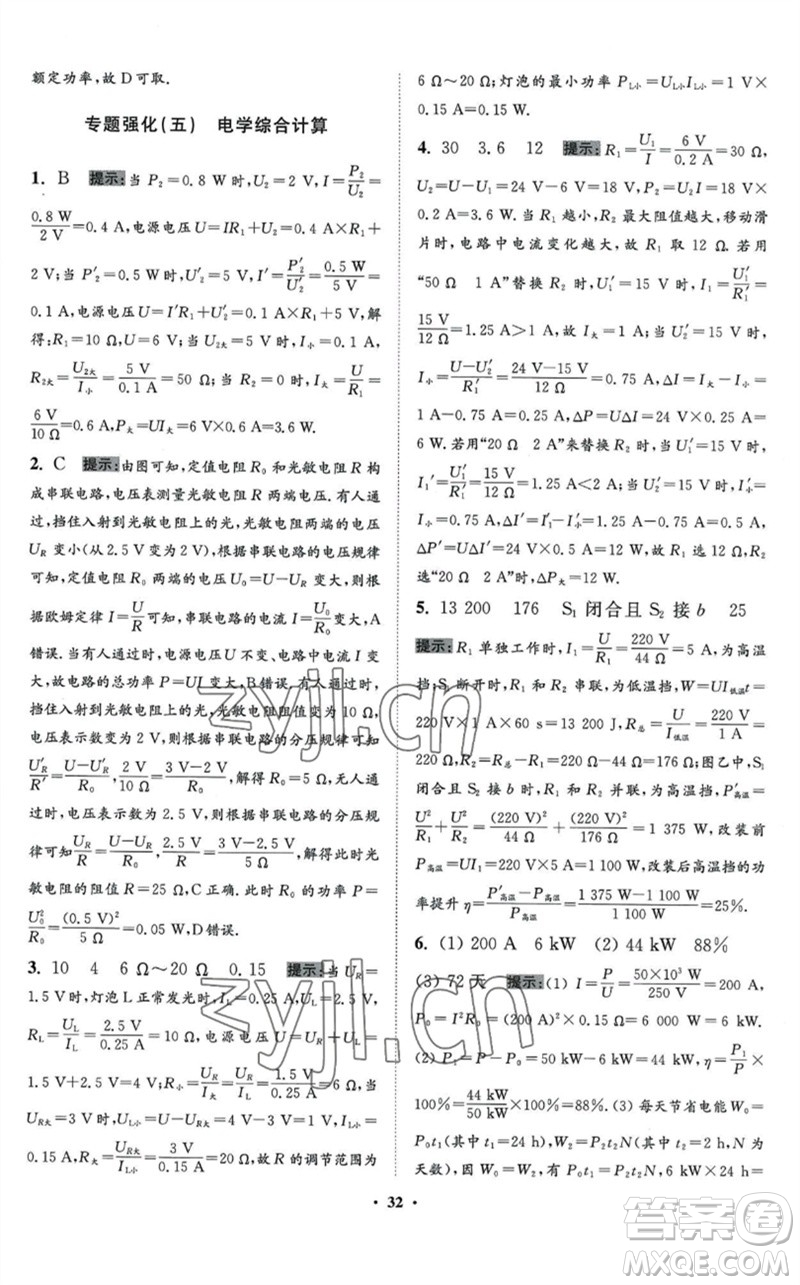 额定功率,故 D 可取.
专题强化(五) 电学综合计算
1. B 提示:当 P₂=0.8 W 时,U₂=2 V,I=P₂/U₂=
0.8 W/2 V=0.4 A,电源电压 U=IR₁+U₂=0.4 A×R₁+
2 V;当 P′₂=0.5 W 时,U′₂=5 V,I′=P′₂/U′₂=0.5 W/5 V=
0.1 A,电源电压 U=I′R₁+U′₂=0.1 A×R₁+5 V,解
得:R₁=10 Ω,U=6 V;当 U₂大=5 V 时,I小=0.1 A,
R₂大=U₂大/I小=5 V/0.1 A=50 Ω;当 R₁ 单独工作时,I大=U/R₁=
6 V/10 Ω=0.6 A,P大=UI大=6 V×0.6 A=3.6 W.
2. C 提示:由图可知,定值电阻 R₀ 和光敏电阻 R 构
成串联电路,电压表测量光敏电阻 R 两端电压.有人通
过时,挡住入射到光敏电阻上的光,光敏电阻两端的电压
U_R 变小(从 2.5 V 变为 2 V),根据串联电路的电压规律
可知定值电阻 R₀ 两端的电压 U₀=U−U_R 变大,则根
据欧姆定律 I=U/R 可知,串联电路的电流 I 变大,A
错误.串联电路的电源电压 U 不变、电路电流 I 变大,
故电路的总功率 P=UI 变大,B 错误.有人通过时,挡
住入射到光敏电阻上的光,光敏电阻阻值变为 10 Ω,电
压表示数变为 2 V,根据串联电路的分压规律可知
U′_R/R′=(U−U′_R)/R₀,2 V/10 Ω=(3 V−2 V)/R₀,解得 R₀=5 Ω.无人通
过时,电压表示数为 2.5 V,同样根据串联电路的分压规
律可知 U_R/R=(U−U_R)/R₀,2.5 V/R=(3 V−2.5 V)/5 Ω,解得此时光
敏电阻的阻值 R=25 Ω,C 正确.此时 R₀ 的功率 P=
U₀²/R₀=(0.5 V)²/5 Ω=0.05 W,D 错误.
3. 10 4 6 Ω～20 Ω 0.15 提示:当 U_R=
1.5 V 时,灯泡 L 正常发光时,I大=0.25 A,U_L=2.5 V,
R_L=U_L/I大=2.5 V/0.25 A=10 Ω,电源电压 U=U_R+U_L=
1.5 V+2.5 V=4 V;R小=U_R/I大=1.5 V/0.25 A=6 Ω;当 I小=0.15 A,
U_R大=U−U_L小=4 V−1 V=3 V,U_L小=1 V,I_L小=
0.15 A,R大=U_R大/I_L小=3 V/0.15 A=20 Ω,故 R 的调节范围为
6 Ω～20 Ω;灯泡的最小功率 P_L小=U_L小I_L小=1 V×
0.15 A=0.15 W.
4. 30 3.6 12 提示:R₁=U₁/I=6 V/0.2 A=30 Ω,
U₂=U−U₁=24 V−6 V=18 V,P₂=U₂I=18 V×
0.2 A=3.6 W.当 R₁ 越小,R₂ 最大阻值越大,移动滑
片时,电路中电流变化越大,故 R₁ 取 12 Ω.若用
“50 Ω 1 A”替换 R₂ 时,U′₁=15 V 时,I₁=U′₁/R′₁=
15 V/12 Ω=1.25 A>1 A,故 I大=1 A.当 U′₂=15 V 时,
I小=(U−U′₂)/R′₁=(24 V−15 V)/12 Ω=0.75 A,ΔI=I大−I小=
1 A−0.75 A=0.25 A,ΔP=UΔI=24 V×0.25 A=
6 W.若用“20 Ω 2 A”来替换 R₂ 时,U′₁=15 V 时,
I₁′=U′₁/R′₁=15 V/12 Ω=1.25 A<2 A;当 U′₂=15 V 时,
I小=0.75 A,ΔI′=I′₁−I小=1.25 A−0.75 A=0.5 A,
ΔP′=UΔI′=24 V×0.5 A=12 W,故 ΔP′>ΔP,应
选“20 Ω 2 A”的 R₂.
5. 13 200 176 S₁ 闭合且 S₂ 接 b 25
提示:R₁ 单独工作时,I=U/R₁=220 V/44 Ω=5 A,为高温
挡;S₁ 断开时,R₁ 和 R₂ 串联,为低温挡,W=UI低温t=
220 V×1 A×60 s=13 200 J,R总=U/I低温=220 V/1 A=
220 Ω,R₂=R总−R₁=220 Ω−44 Ω=176 Ω;图乙中,S₁
闭合且 S₂ 接 b 时,R₁ 和 R₂ 并联,为高温挡,P′高温=
U²/R₁+U²/R₂=(220 V)²/44 Ω+(220 V)²/176 Ω=1 375 W,改装前
P高温=UI₁=220 V×5 A=1 100 W,改装后高温挡的功
率提升 η=(P′高温−P高温)/P高温=(1 375 W−1 100 W)/1 100 W=25%.
6. (1) 200 A 6 kW (2) 44 kW 88%
(3) 72 天 提示:(1) I=P/U=50×10³ W/250 V=200 A,
P₀=I²R₀=(200 A)²×0.15 Ω=6 000 W=6 kW.
(2) P₁=P−P₀=50 kW−6 kW=44 kW,η=P₁/P×
100%=44 kW/50 kW×100%=88%.(3) 每天节省电能 W₀=
P₀t₁(其中 t₁=24 h),W₂=P₂t₁n(其中 P₂=18 kW,n 为
天数),因 W₀=W₂,有 P₀t₁=P₂t₁n,即 6 kW×24 h×
• 32 •
zyjl.cn
zyjl.cn
答案圈
MXQE.COM